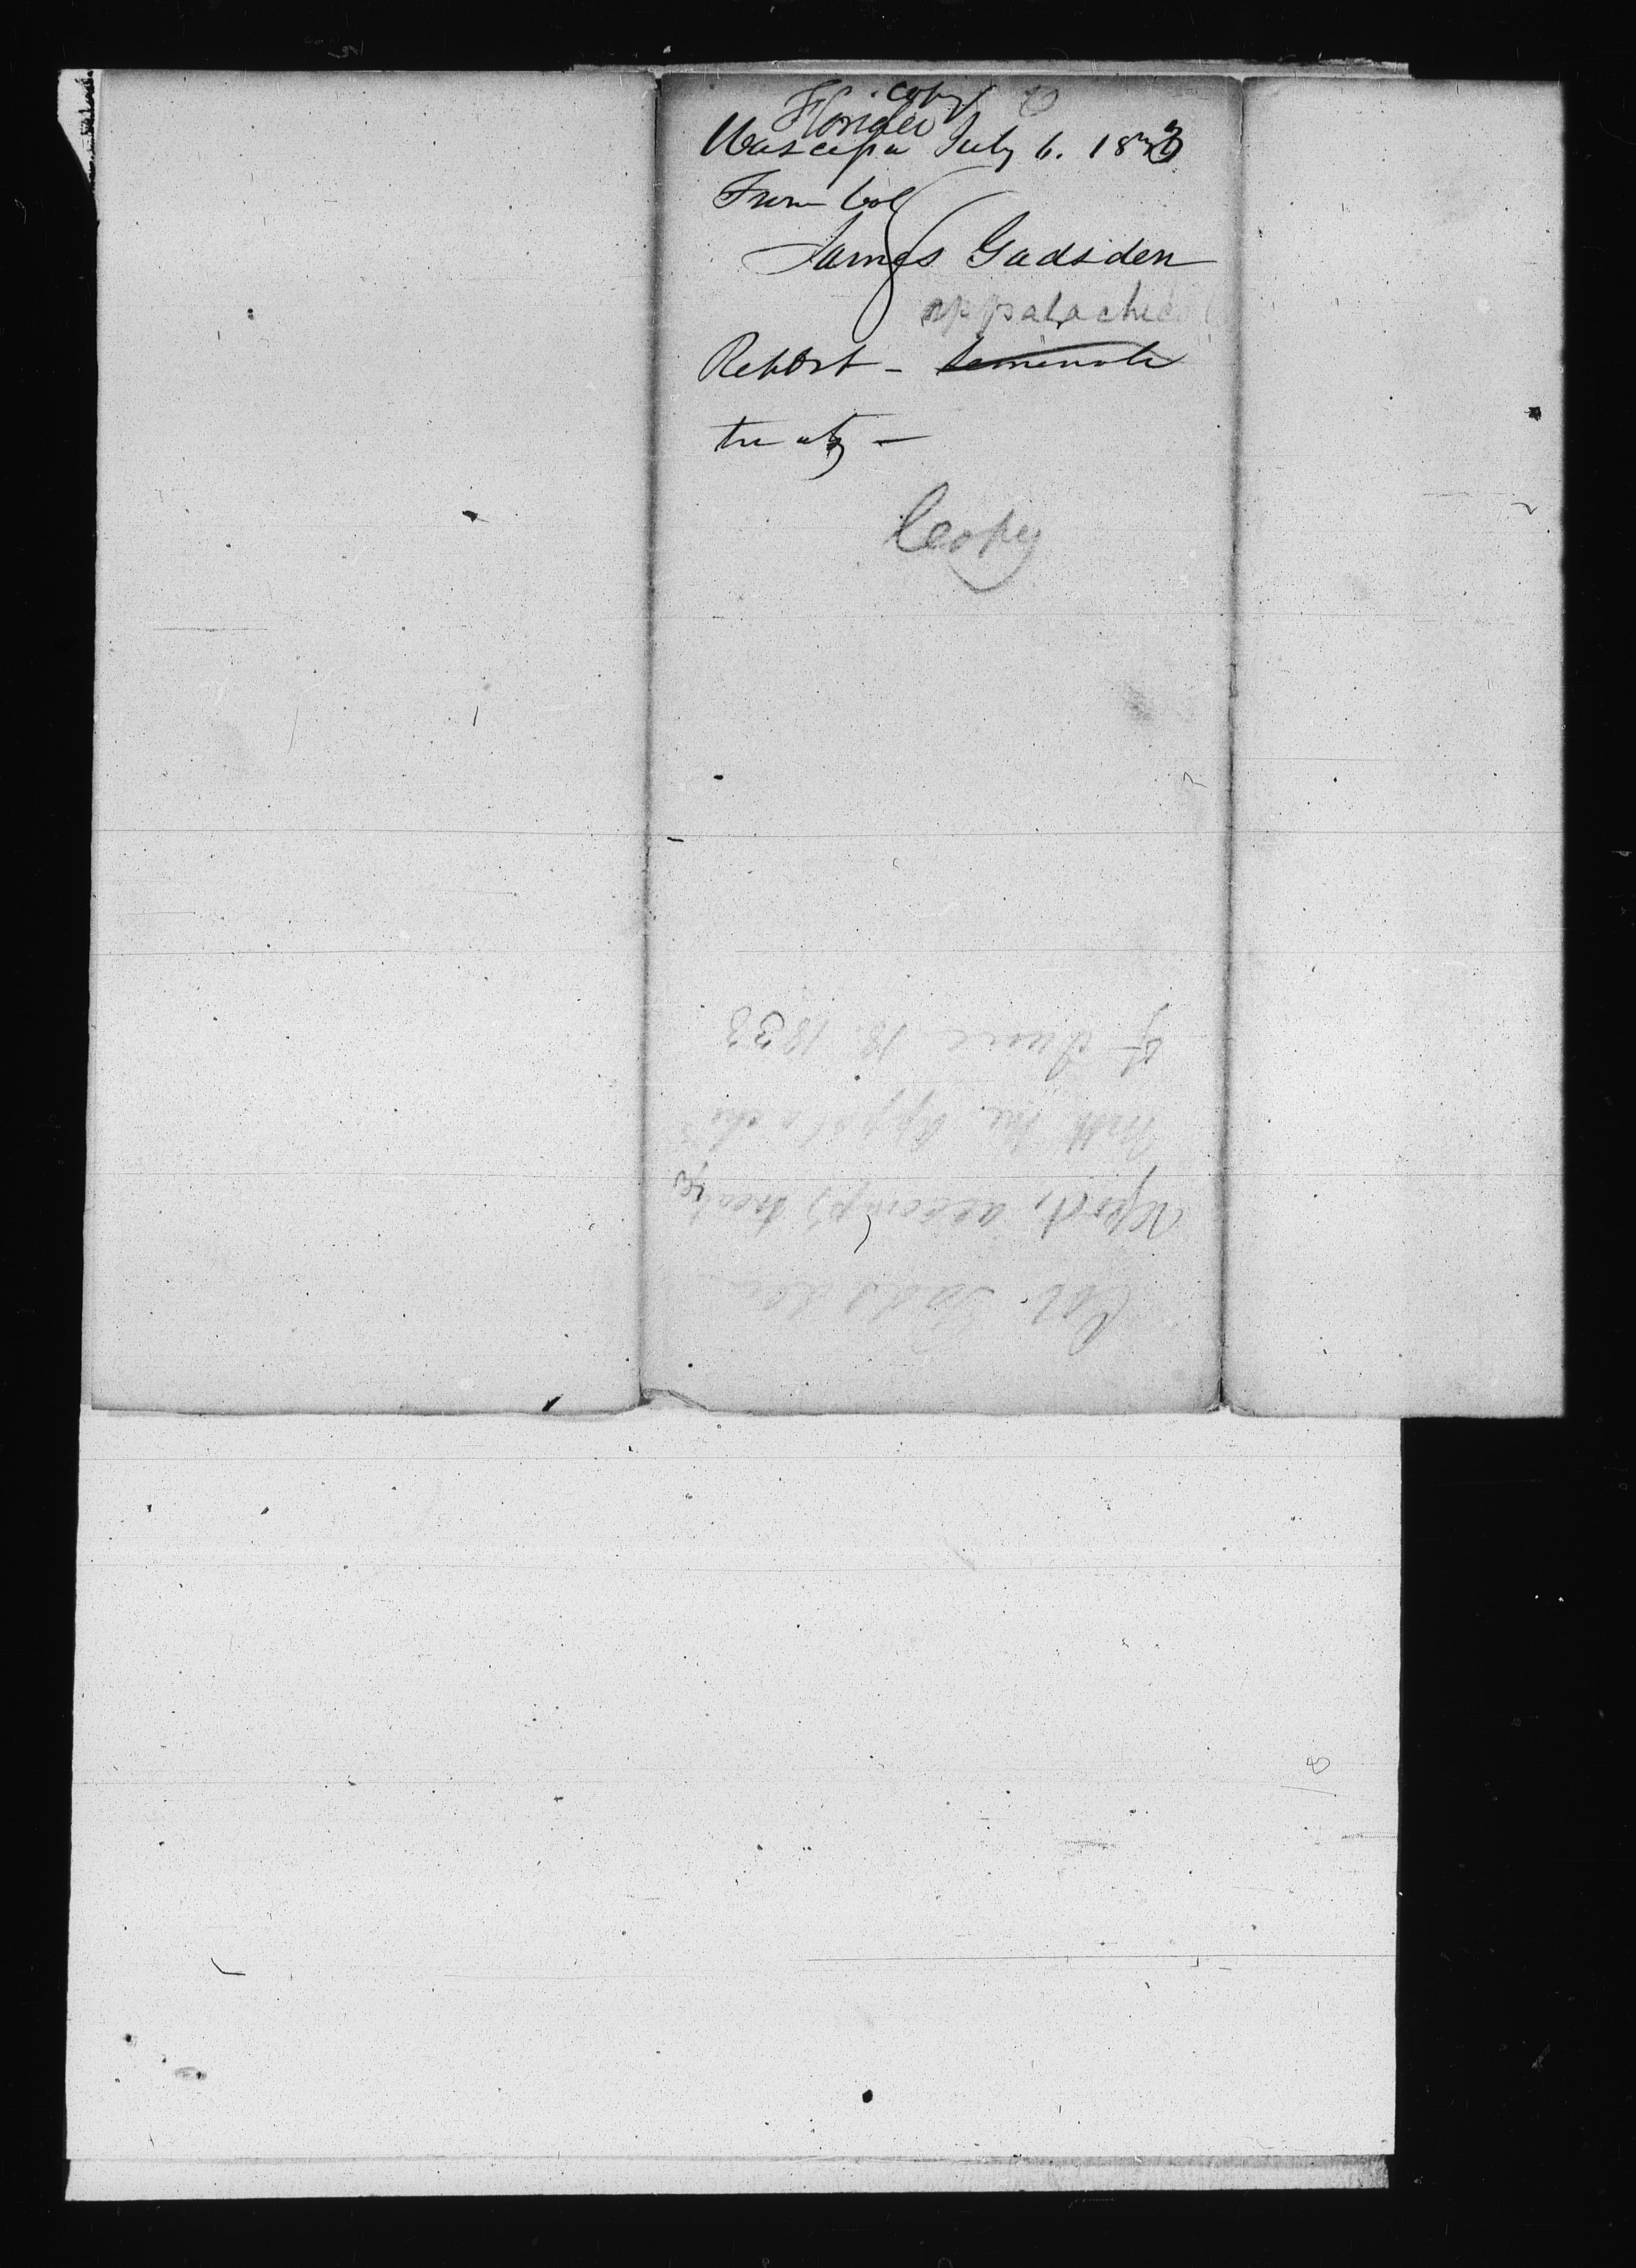 Copy
Florida
Wascissa July 6. 1833
From Col
James Gadsden
appalachicola
Report - Seminole
treaty -
Copy
Col. Gadsden
Report, accomp'g treaty
with the Appalachi
of June 18. 1833